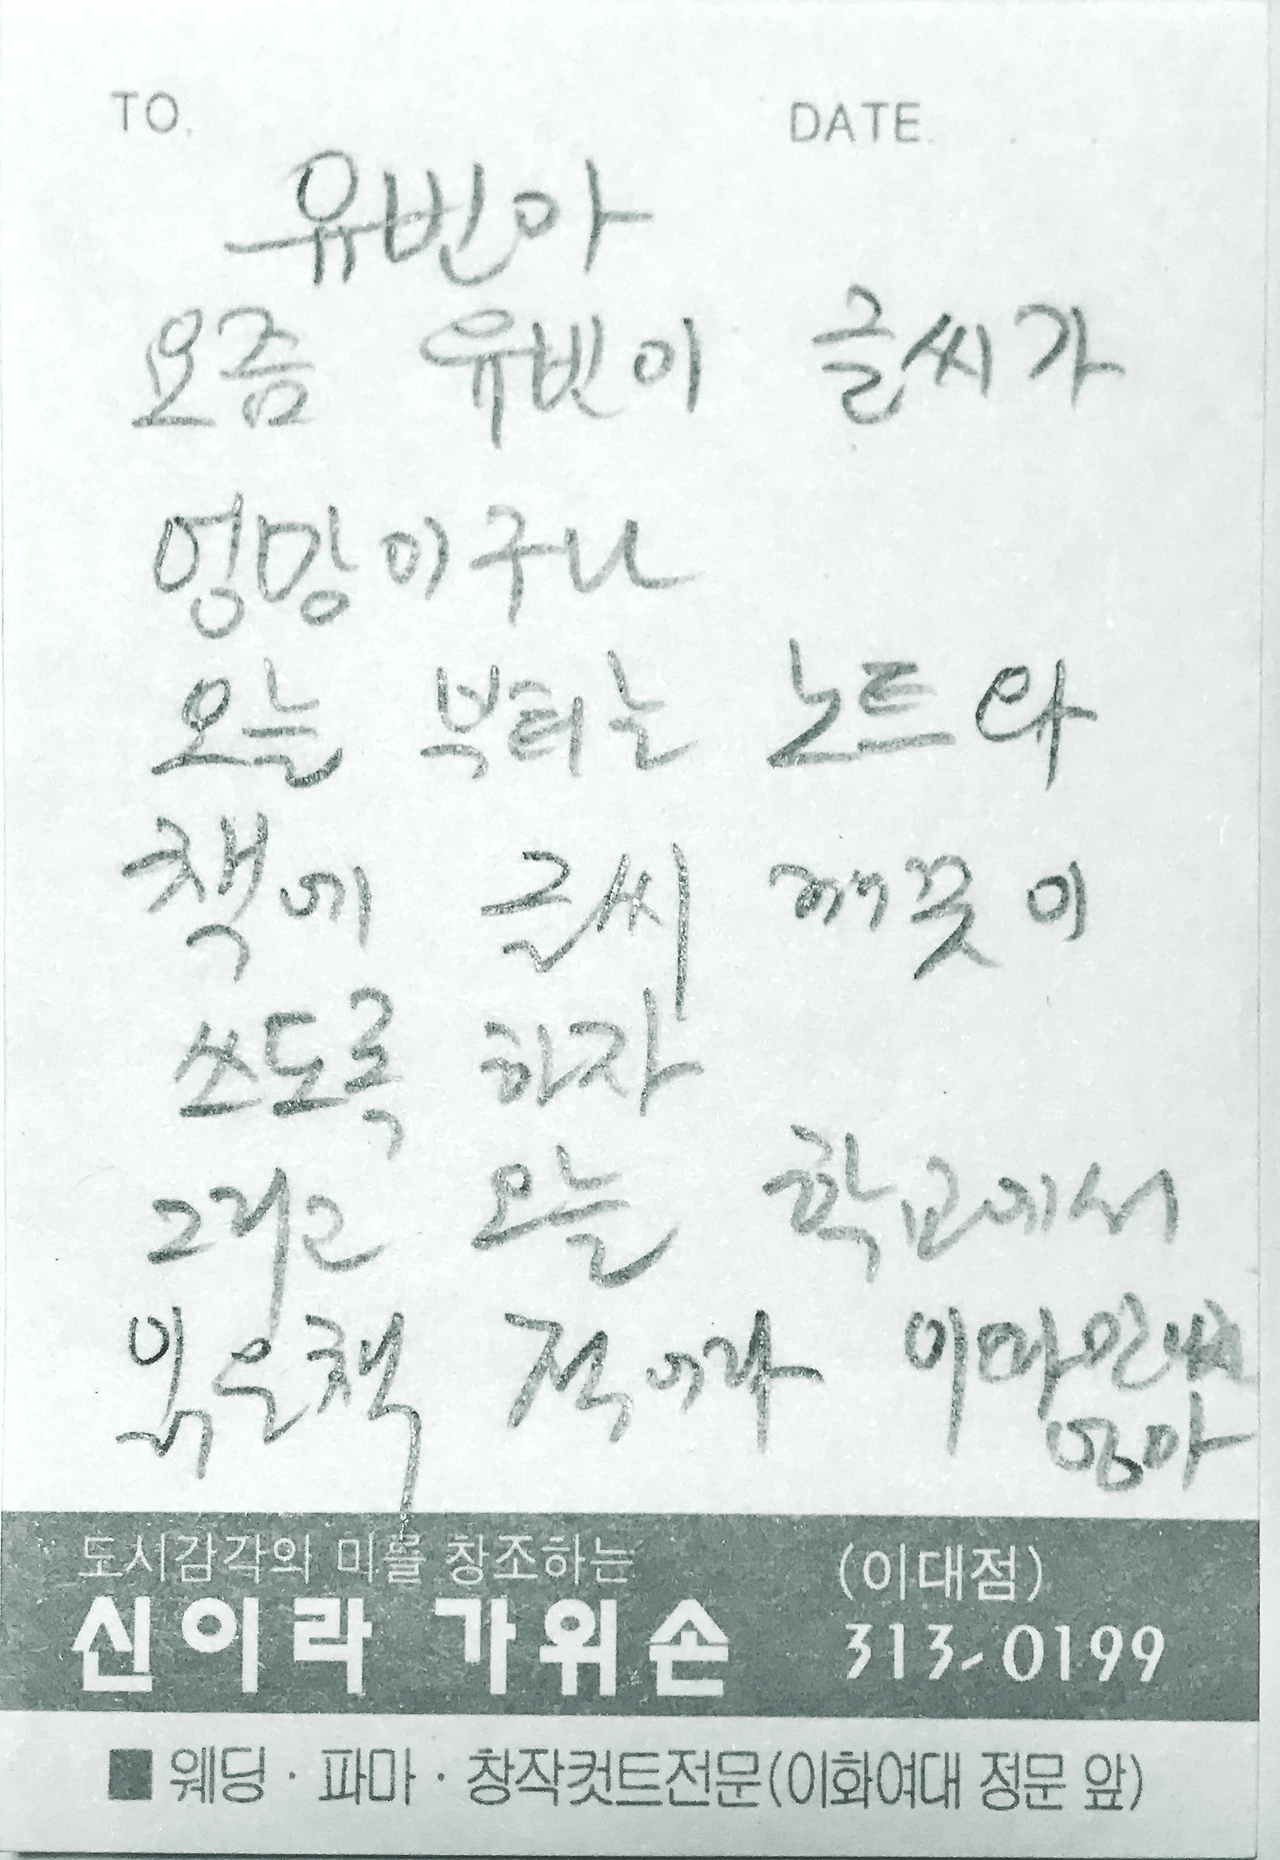 TO. DATE.
유빈아
요즘 유빈이 글씨가
엉망이구나
오늘 부터는 노트와
책에 글씨 깨끗이
쓰도록 하자
그리고 오늘 학교에서
읽은책 적어라
엄마
도시감각의 미를 창조하는 (이대점)
신이락 가위손 313-0199
■ 웨딩 · 파마 · 창작컷트전문(이화여대 정문 앞)